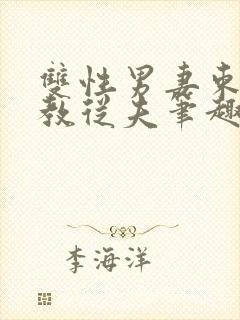 雙性男妻柬
教從夫筆趣
李海洋